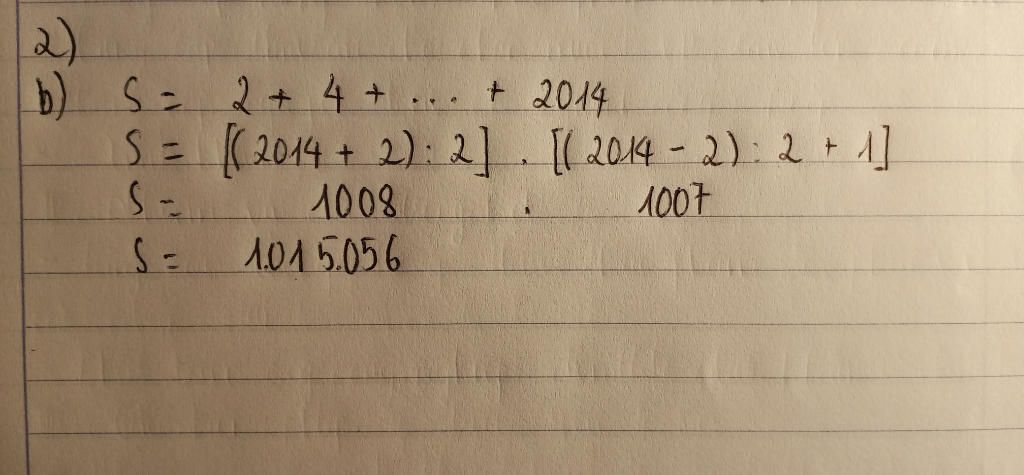 2)
b) S = 2 + 4 + ... + 2014
S = [(2014 + 2) : 2] . [(2014 - 2) : 2 + 1]
S = 1008 . 1007
S = 1.015.056